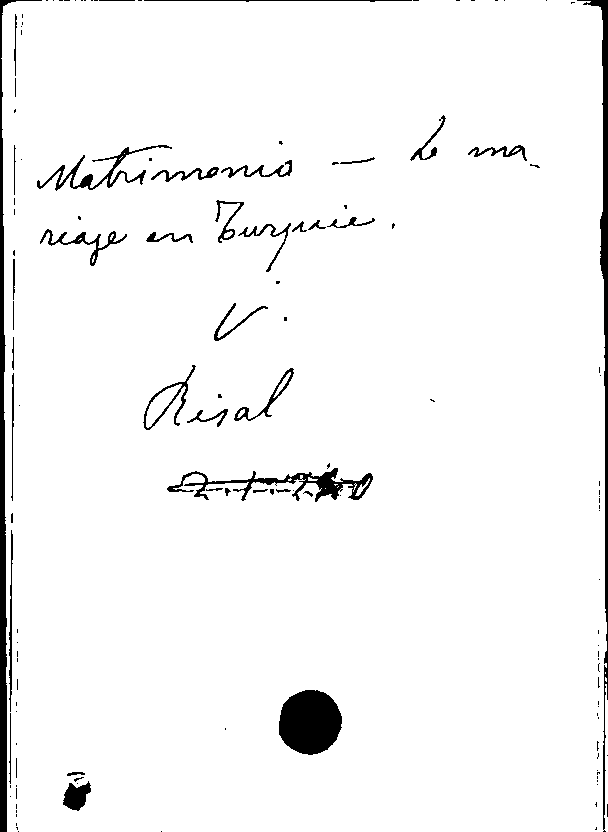 Matrimonio — Le ma-
riage en Turquie.
V.
Risal